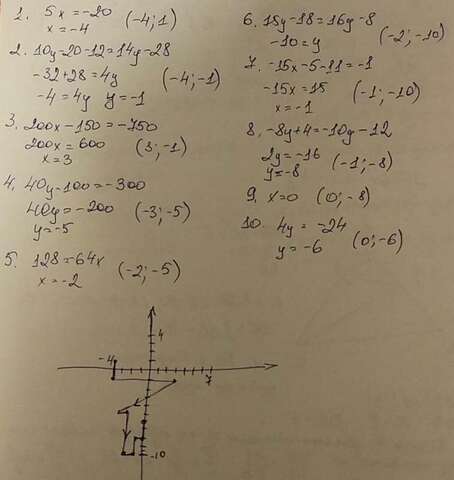 1. 5x = -20 (-4; 1)
x = -4
2. 10y - 20 - 12 = 14y - 28
-32 + 28 = 4y (-4; -1)
-4 = 4y y = -1
3. 200x - 150 = -750
200x = 600 (3; -1)
x = 3
4. 40y - 100 = -300
40y = -200 (-3; -5)
y = -5
5. 128 = -64x (-2; -5)
x = -2
6. 18y - 18 = 16y - 8
-10 = y (-2; -10)
7. -15x - 5 - 11 = -1
-15x = 15 (-1; -10)
x = -1
8. -8y + 4 = -10y - 12
2y = -16 (-1; -8)
y = -8
9. x = 0 (0; -8)
10. 4y = -24
y = -6 (0; -6)
4
-4
7
-10